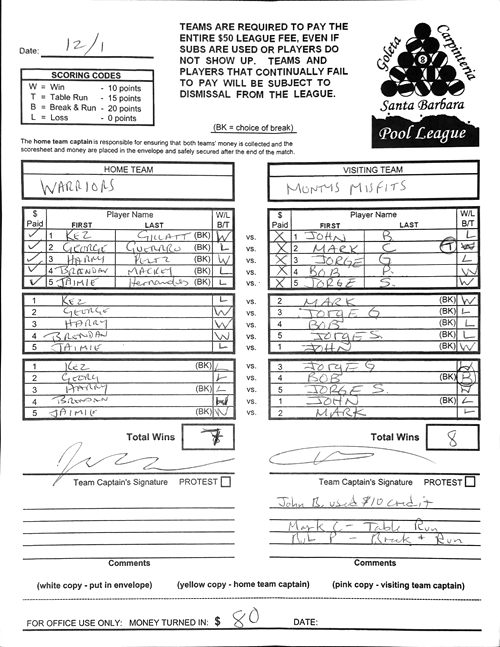 Date: 12/1
SCORING CODES
W = Win - 10 points
T = Table Run - 15 points
B = Break & Run - 20 points
L = Loss - 0 points
TEAMS ARE REQUIRED TO PAY THE
ENTIRE $50 LEAGUE FEE, EVEN IF
SUBS ARE USED OR PLAYERS DO
NOT SHOW UP. TEAMS AND
PLAYERS THAT CONTINUALLY FAIL
TO PAY WILL BE SUBJECT TO
DISMISSAL FROM THE LEAGUE.
(BK = choice of break)
Goleta Carpinteria
8
Santa Barbara
Pool League
The home team captain is responsible for ensuring that both teams' money is collected and the
scoresheet and money are placed in the envelope and safely secured after the end of the match.
HOME TEAM VISITING TEAM
WARRIORS MONTYS MISFITS
$ Paid Player Name FIRST LAST W/L B/T $ Paid Player Name FIRST LAST W/L B/T
1 KEZ GILLATT (BK) W vs. X 1 JOHN B. L
2 GEORGE GUERRERO (BK) L vs. X 2 MARK C T
3 HARRY PEREZ (BK) W vs. X 3 JORGE G L
4 BRENDAN MACKEY (BK) L vs. X 4 BOB P. W
5 JAIMIE Hernandes (BK) L vs. X 5 JORGE S. W
1 KEZ L vs. 2 MARK (BK) W
2 GEORGE W vs. 3 JORGE G (BK) L
3 HARRY W vs. 4 BOB (BK) L
4 BRENDAN W vs. 5 JORGE S. (BK) L
5 JAIMIE L vs. 1 JOHN (BK) W
1 KEZ (BK) L vs. 3 JORGE G W
2 GEORG L vs. 4 BOB (BK) B
3 HARRY (BK) L vs. 5 JORGE S. W
4 BRENDAN W vs. 1 JOHN (BK) L
5 JAIMIE (BK) W vs. 2 MARK L
Total Wins 7 Total Wins 8
Team Captain's Signature PROTEST Team Captain's Signature PROTEST
John B. used $10 credit
Mark C - Table Run
Bob P - Break + Run
Comments Comments
(white copy - put in envelope) (yellow copy - home team captain) (pink copy - visiting team captain)
FOR OFFICE USE ONLY: MONEY TURNED IN: $ 80 DATE: